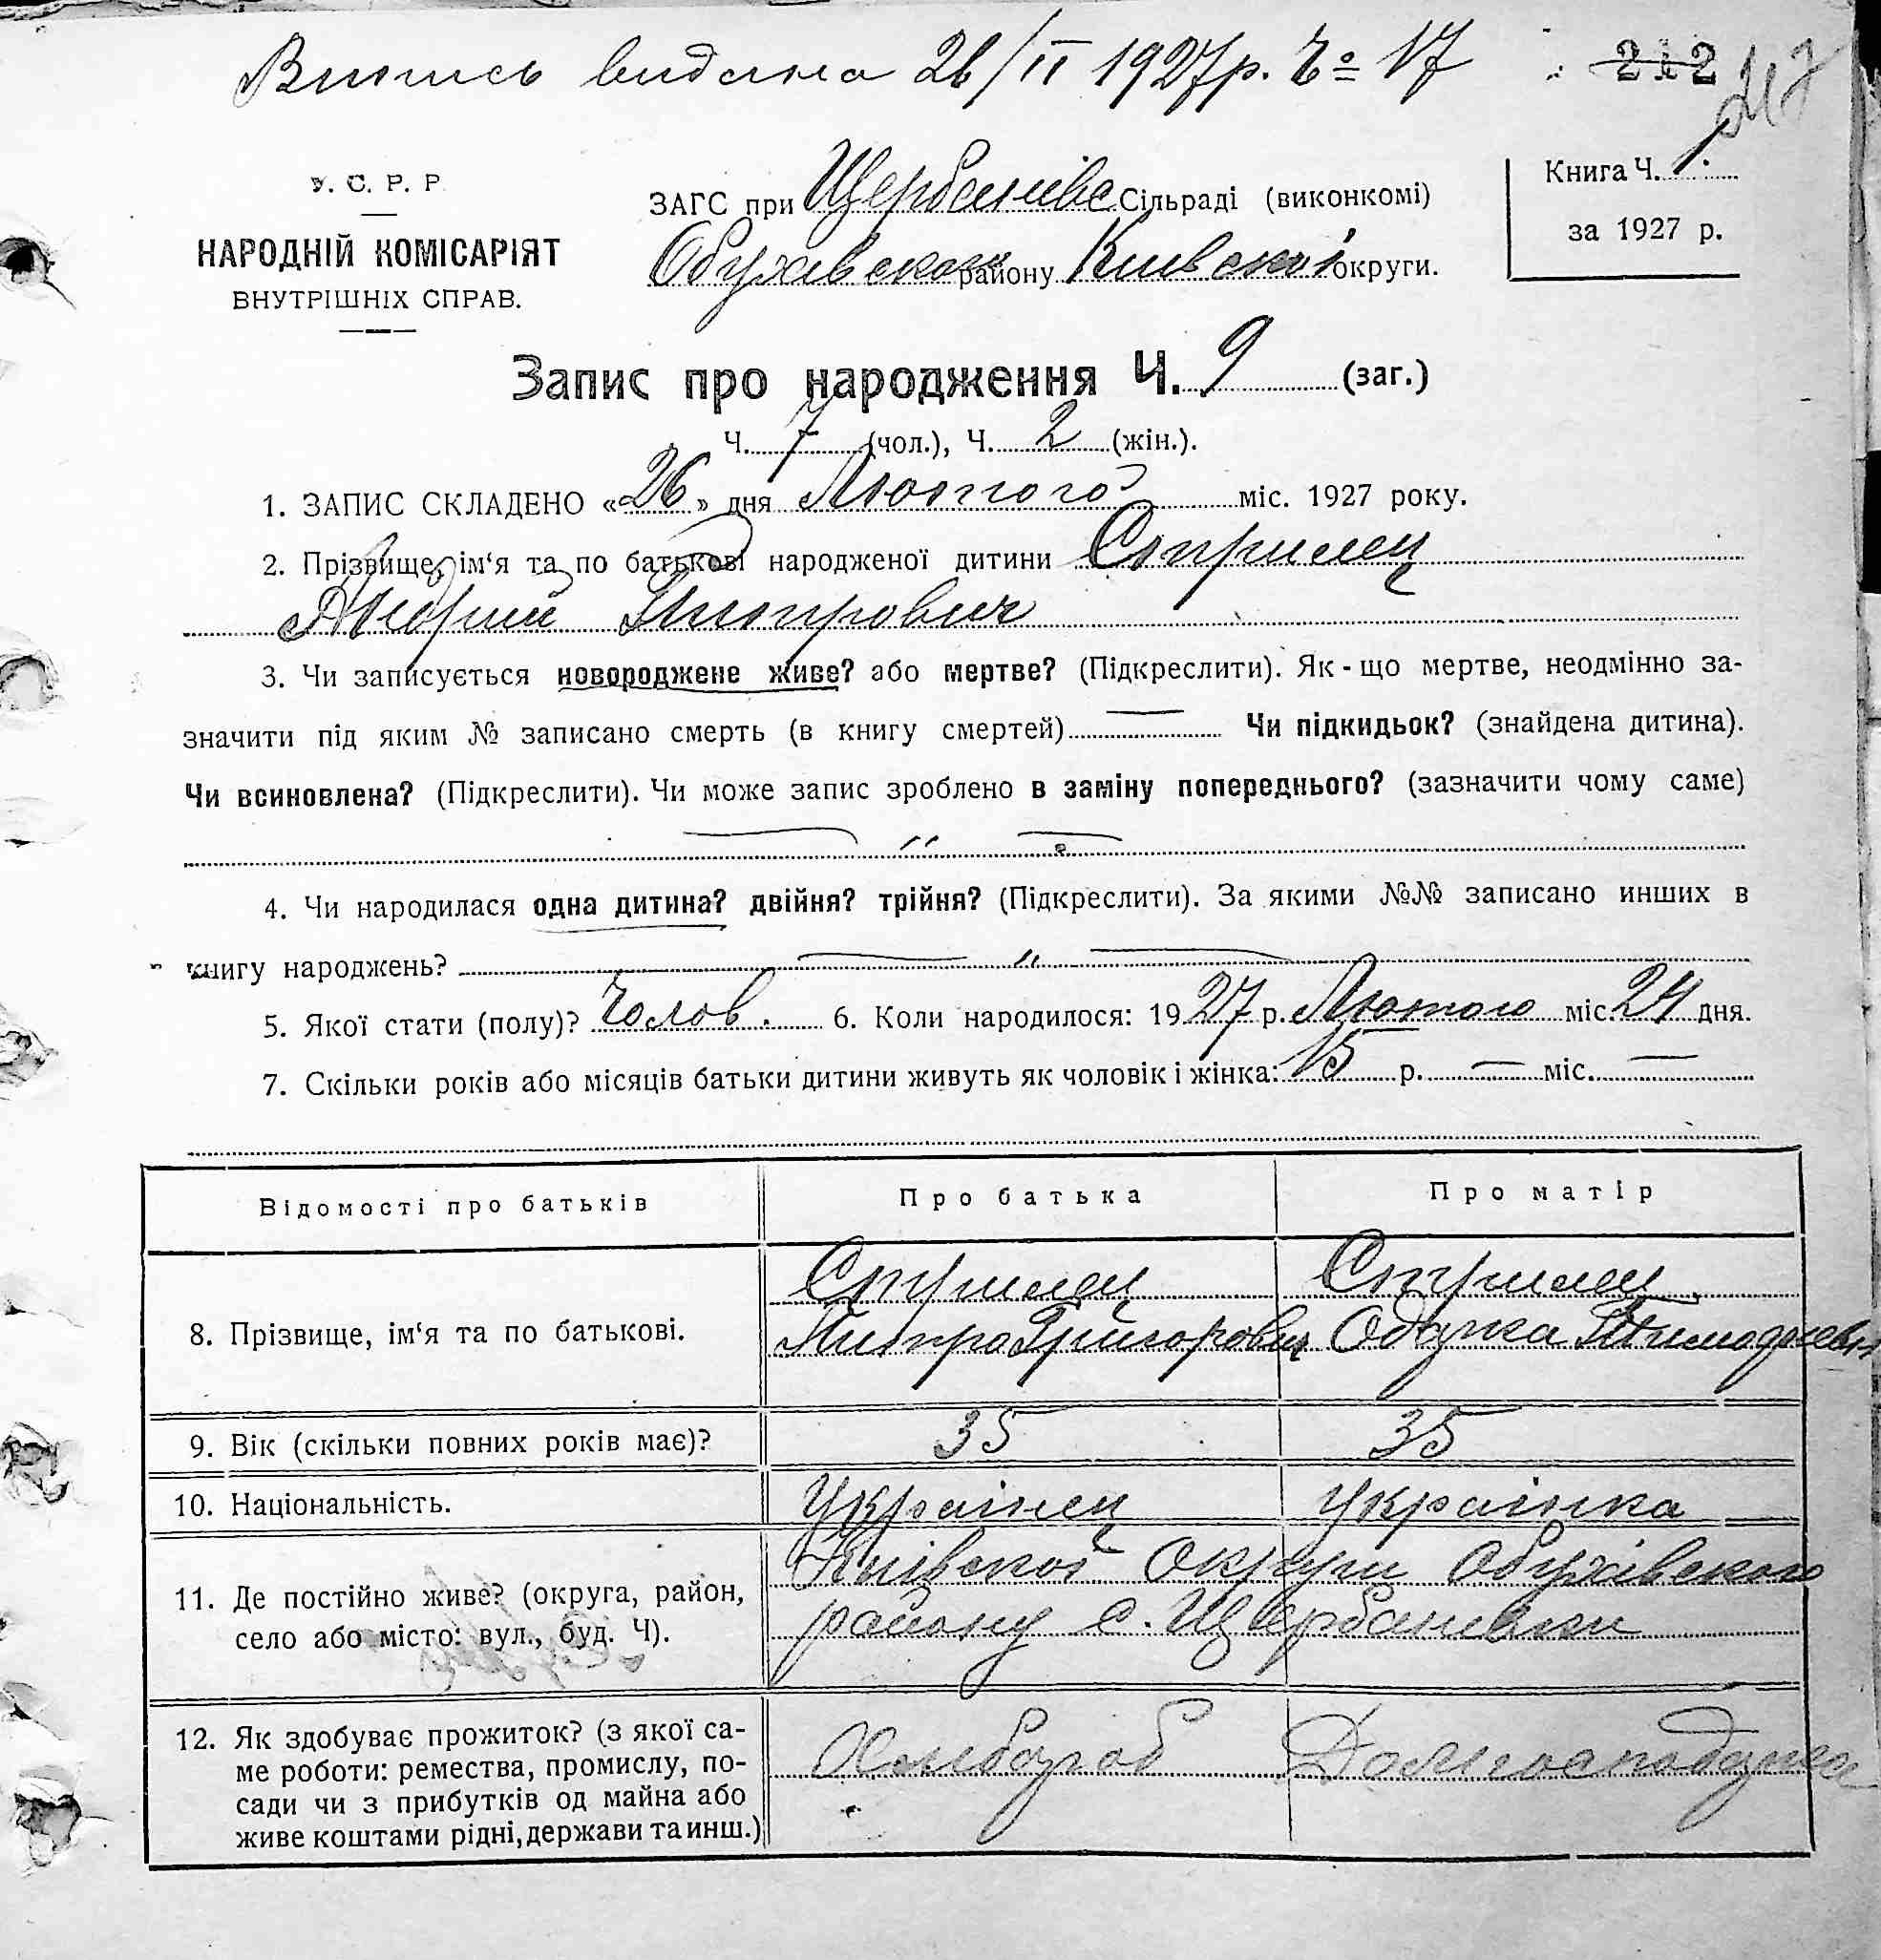 Випись видана 26/II 1927р. Ч० 17
212 217
У. С. Р. Р.
НАРОДНІЙ КОМІСАРІЯТ
ВНУТРІШНІХ СПРАВ.
ЗАГС при Щербанівс Сільраді (виконкомі)
Обухівского району Київскої округи.
Книга Ч. 1.
за 1927 р.
Запис про народження Ч. 9 (заг.)
Ч. 7 (чол.), Ч. 2 (жін.).
1. ЗАПИС СКЛАДЕНО «26» дня Лютого міс. 1927 року.
2. Прізвище, ім‘я та по батькові народженої дитини Стрилец
Андрий Дмитрович
3. Чи записується новороджене живе? або мертве? (Підкреслити). Як-що мертве, неодмінно за-
значити під яким № записано смерть (в книгу смертей) — Чи підкидьок? (знайдена дитина).
Чи всиновлена? (Підкреслити). Чи може запис зроблено в заміну попереднього? (зазначити чому саме)
— ,, —
4. Чи народилася одна дитина? двійня? трійня? (Підкреслити). За якими №№ записано инших в
книгу народжень? — ,, —
5. Якої стати (полу)? Чолов. 6. Коли народилося: 1927 р. Лютого міс. 24 дня.
7. Скільки років або місяців батьки дитини живуть як чоловік і жінка: 15 р. — міс. —
Відомості про батьків Про батька Про матір
8. Прізвище, ім‘я та по батькові. Стрилец Стрилец
Дмитро Григорович Одарка
9. Вік (скільки повних років має)? 35 35
10. Національність. Українец Українка
11. Де постійно живе? (округа, район, Київскої Округи Обухівского
село або місто: вул., буд. Ч). району с. Щербанивки
12. Як здобуває прожиток? (з якої са-
ме роботи: ремества, промислу, по- Хлибороб Домгосподарка
сади чи з прибутків од майна або
живе коштами рідні, держави та инш.)